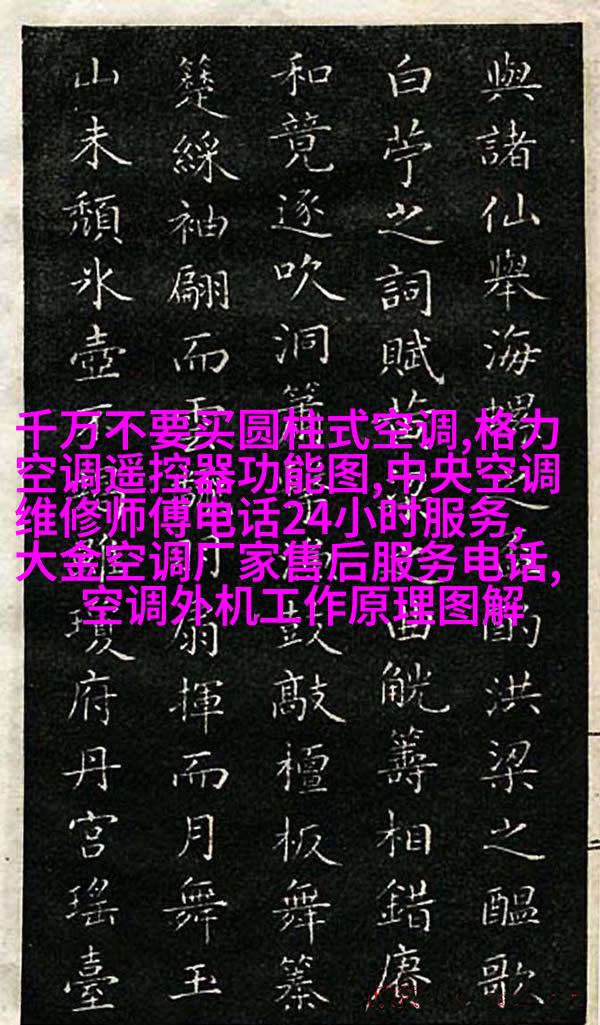 千万不要买圆柱式空调,格力
空调遥控器功能图,中央空调
维修师傅电话24小时服务,
大金空调厂家售后服务电话,
空调外机工作原理图解
與諸仙舉海螺之酌洪梁之醞歌
白苧之詞賦之曲觥籌相錯賡
和競逐吹洞簫鼓敲檀板舞纂
綵袖翩而雲扇揮而月舞玉
山未頹氷壺雖瓊府丹宮瑤臺